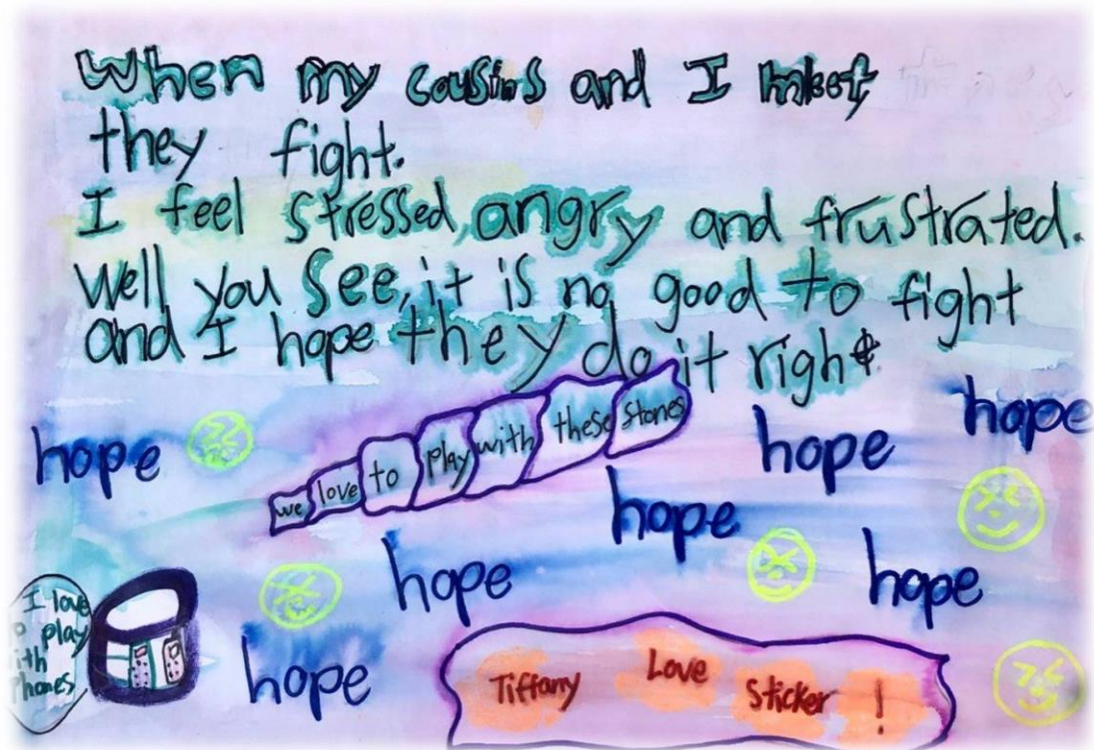 When my cousins and I meet
they fight.
I feel stressed, angry and frustrated.
Well you see, it is no good to fight
and I hope they do it right
hope
hope
hope
we love to play with these stones
hope
hope
hope
I love
play
with
phones
hope
Tiffany Love Sticker !